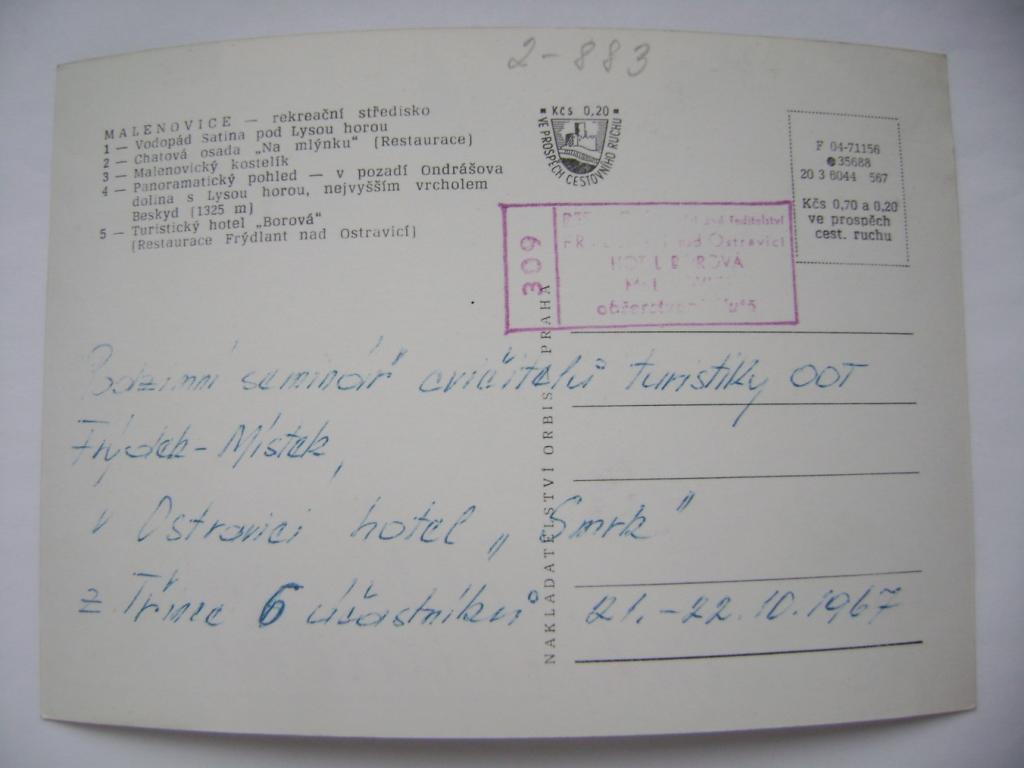 2-883
MALENOVICE — rekreační středisko
1 — Vodopád Satina pod Lysou horou
2 — Chatová osada „Na mlýnku" (Restaurace)
3 — Malenovický kostelík
4 — Panoramatický pohled — v pozadí Ondrášova
dolina s Lysou horou, nejvyšším vrcholem
Beskyd (1325 m)
5 — Turistický hotel „Borová"
(Restaurace Frýdlant nad Ostravicí)
Kčs 0,20
VE PROSPĚCH CESTOVNÍHO RUCHU
F 04-71156
35688
20 3 6044 567
Kčs 0,70 a 0,20
ve prospěch
cest. ruchu
309
ředitelství
nad Ostravicí
HOTEL BOROVÁ
NAKLADATELSTVÍ ORBIS, PRAHA
Podzimní seminář cvičitelů turistiky OOT
Frýdek-Místek,
v Ostravici hotel „Smrk"
z Třince 6 účastníků 21.-22.10.1967